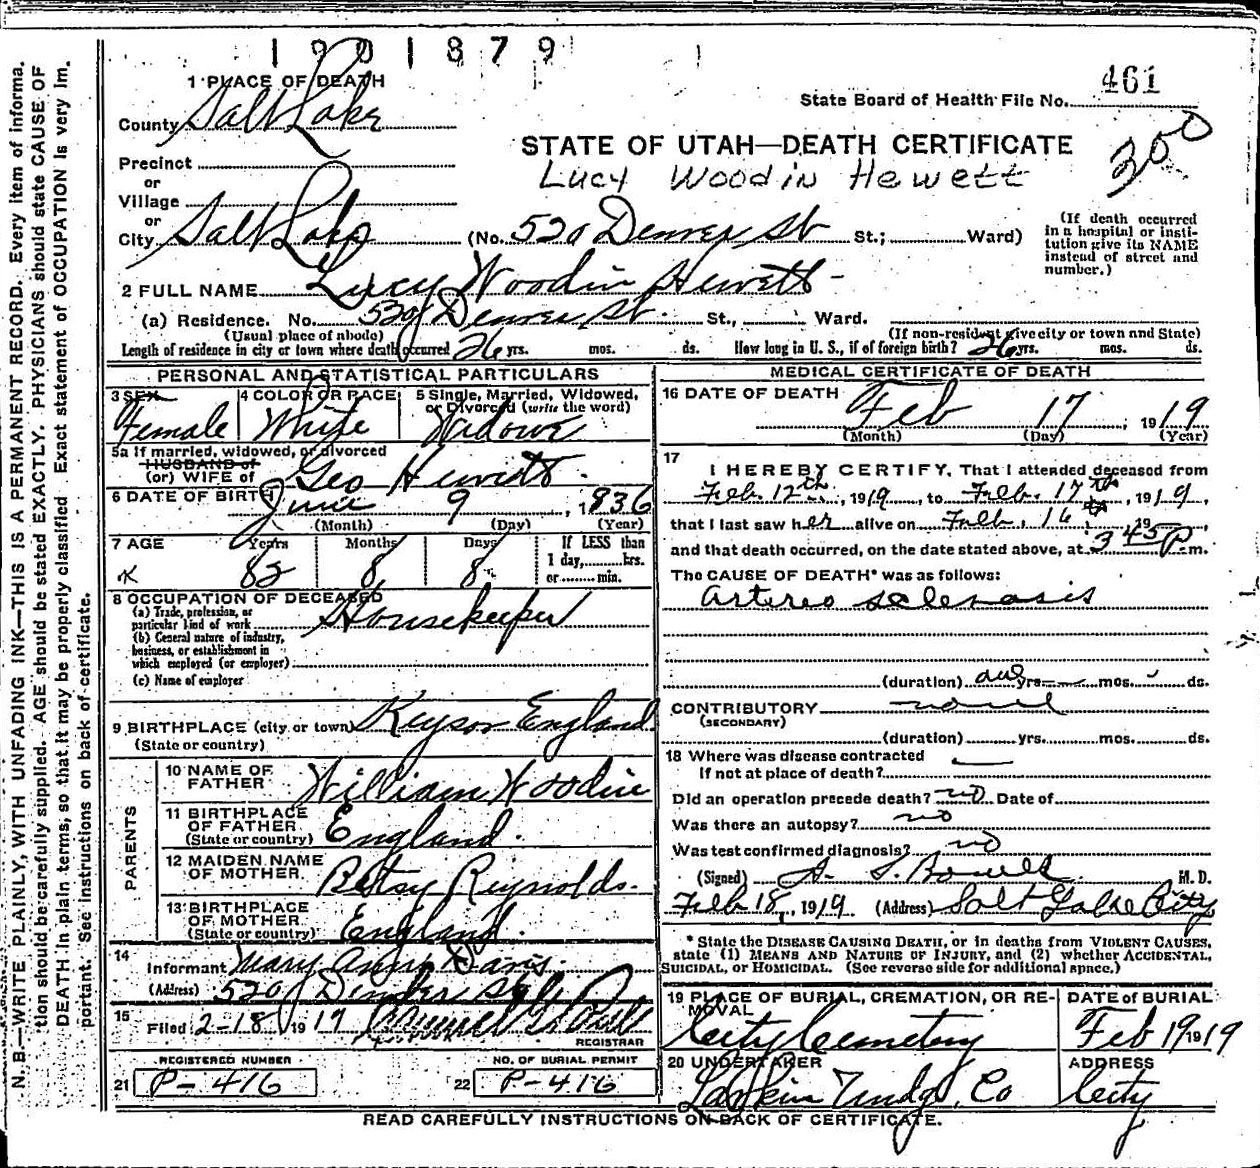 1901879
1 PLACE OF DEATH
461
State Board of Health File No.
County Salt Lake
STATE OF UTAH—DEATH CERTIFICATE
300
Precinct
Lucy Woodin Hewett
or
Village
or
City Salt Lake (No. 520 Denver St St.; Ward)
(If death occurred in a hospital or insti-
tution give its NAME
instead of street and
number.)
2 FULL NAME Lucy Woodin Hewett
(a) Residence. No. 520 Denver St. St., Ward.
(Usual place of abode) (If non-resident give city or town and State)
Length of residence in city or town where death occurred 26 yrs. mos. ds. How long in U. S., if of foreign birth? 26 yrs. mos. ds.
PERSONAL AND STATISTICAL PARTICULARS
3 SEX 4 COLOR OR RACE 5 Single, Married, Widowed,
or Divorced (write the word)
Female White Widow
5a If married, widowed, or divorced
HUSBAND of
(or) WIFE of Geo Hewett
6 DATE OF BIRTH June 9, 1836
(Month) (Day) (Year)
7 AGE Years Months Days If LESS than
1 day, hrs.
or min.
82 8 8
8 OCCUPATION OF DECEASED
(a) Trade, profession, or
particular kind of work Housekeeper
(b) General nature of industry,
business, or establishment in
which employed (or employer)
(c) Name of employer
9 BIRTHPLACE (city or town) Keysor England
(State or country)
PARENTS
10 NAME OF
FATHER William Woodin
11 BIRTHPLACE
OF FATHER
(State or country) England.
12 MAIDEN NAME
OF MOTHER Betsy Reynolds.
13 BIRTHPLACE
OF MOTHER
(State or country) England.
14
Informant Mary Ann Davis.
(Address) 520 Denver St
15
Filed 2-18 1919
REGISTRAR
REGISTERED NUMBER NO. OF BURIAL PERMIT
21 P-416 22 P-416
MEDICAL CERTIFICATE OF DEATH
16 DATE OF DEATH
Feb 17, 1919
(Month) (Day) (Year)
17
I HEREBY CERTIFY, That I attended deceased from
Feb. 12th, 1919, to Feb. 17th, 1919,
that I last saw her alive on Feb. 16, 19
and that death occurred, on the date stated above, at 3 45 P. m.
The CAUSE OF DEATH* was as follows:
Arterio sclerosis
(duration) yrs. mos. ds.
CONTRIBUTORY
(SECONDARY)
(duration) yrs. mos. ds.
18 Where was disease contracted
If not at place of death?
Did an operation precede death? no Date of
Was there an autopsy? no
Was test confirmed diagnosis? no
(Signed) M. D.
Feb 18, 1919 (Address) Salt Lake City
* State the DISEASE CAUSING DEATH, or in deaths from VIOLENT CAUSES,
state (1) MEANS AND NATURE OF INJURY, and (2) whether ACCIDENTAL,
SUICIDAL, or HOMICIDAL. (See reverse side for additional space.)
19 PLACE OF BURIAL, CREMATION, OR RE-
MOVAL
DATE of BURIAL
City Cemetery Feb 19 1919
20 UNDERTAKER ADDRESS
Larkin Undg. Co City
READ CAREFULLY INSTRUCTIONS ON BACK OF CERTIFICATE.
N. B.—WRITE PLAINLY, WITH UNFADING INK—THIS IS A PERMANENT RECORD. Every item of informa-
tion should be carefully supplied. AGE should be stated EXACTLY. PHYSICIANS should state CAUSE OF
DEATH in plain terms, so that it may be properly classified. Exact statement of OCCUPATION is very im-
portant. See instructions on back of certificate.